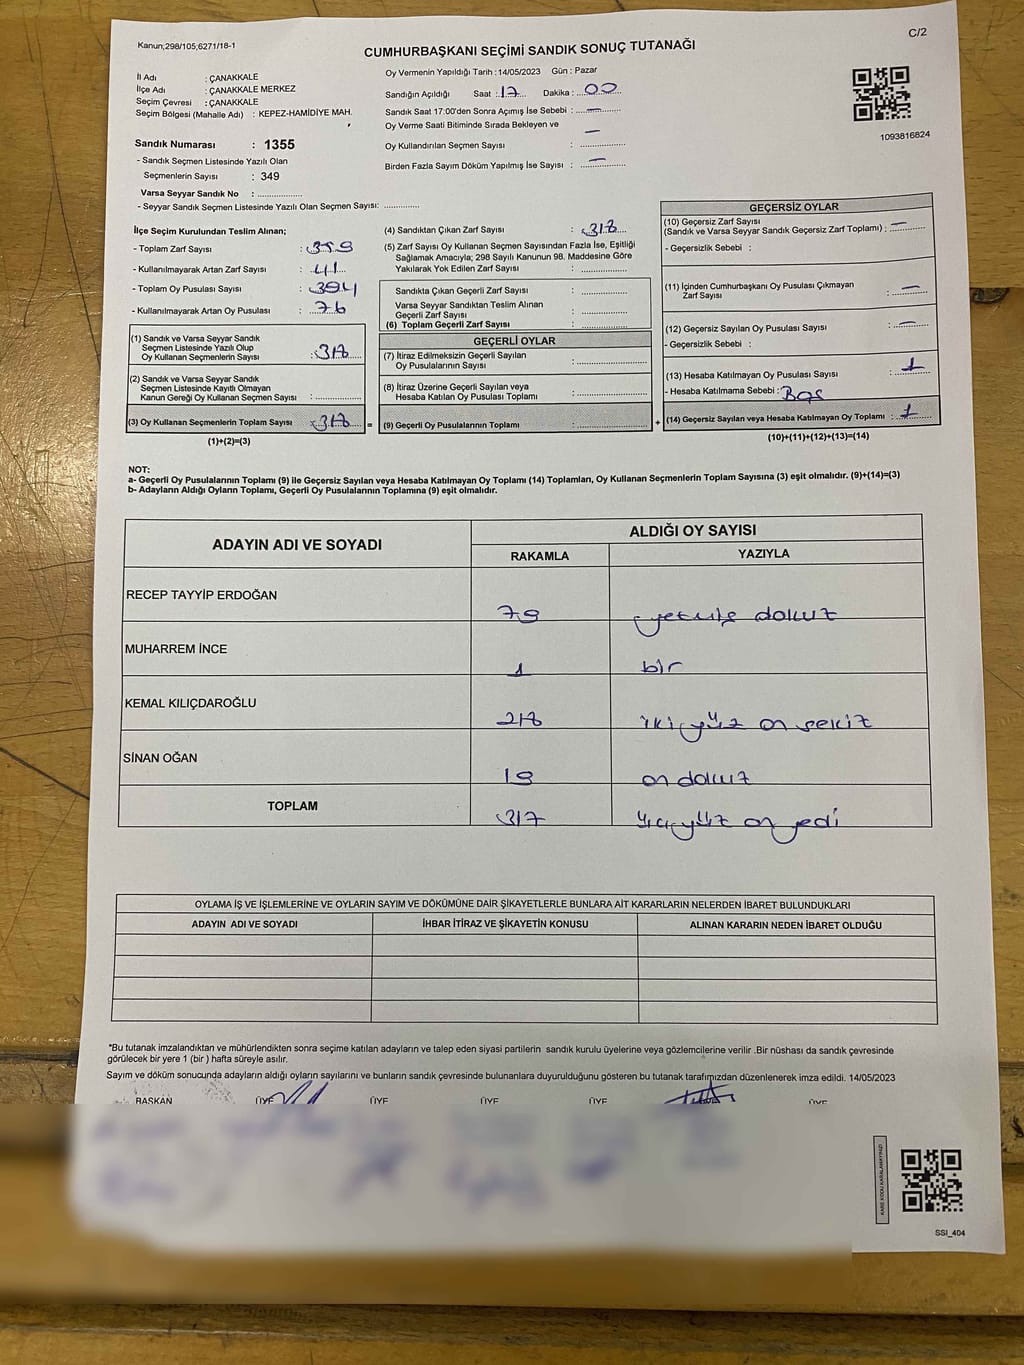 Kanun;298/105;6271/18-1
C/2
CUMHURBAŞKANI SEÇİMİ SANDIK SONUÇ TUTANAĞI
İl Adı : ÇANAKKALE
İlçe Adı : ÇANAKKALE MERKEZ
Seçim Çevresi : ÇANAKKALE
Seçim Bölgesi (Mahalle Adı) : KEPEZ-HAMİDİYE MAH.
Sandık Numarası : 1355
- Sandık Seçmen Listesinde Yazılı Olan
Seçmenlerin Sayısı : 349
Varsa Seyyar Sandık No : ..............
- Seyyar Sandık Seçmen Listesinde Yazılı Olan Seçmen Sayısı: ............
Oy Vermenin Yapıldığı Tarih : 14/05/2023 Gün : Pazar
Sandığın Açıldığı Saat : 17 Dakika : 00
Sandık Saat 17:00'den Sonra Açımış İse Sebebi : —
Oy Verme Saati Bitiminde Sırada Bekleyen ve
Oy Kullandırılan Seçmen Sayısı : —
Birden Fazla Sayım Döküm Yapılmış İse Sayısı : —
1093816824
İlçe Seçim Kurulundan Teslim Alınan;
- Toplam Zarf Sayısı : 359
- Kullanılmayarak Artan Zarf Sayısı : 41
- Toplam Oy Pusulası Sayısı : 394
- Kullanılmayarak Artan Oy Pusulası : 76
(1) Sandık ve Varsa Seyyar Sandık
Seçmen Listesinde Yazılı Olup
Oy Kullanan Seçmenlerin Sayısı : 318
(2) Sandık ve Varsa Seyyar Sandık
Seçmen Listesinde Kayıtlı Olmayan
Kanun Gereği Oy Kullanan Seçmen Sayısı : ..............
(3) Oy Kullanan Seçmenlerin Toplam Sayısı : 318 =
(1)+(2)=(3)
(4) Sandıktan Çıkan Zarf Sayısı : 318
(5) Zarf Sayısı Oy Kullanan Seçmen Sayısından Fazla İse, Eşitliği
Sağlamak Amacıyla; 298 Sayılı Kanunun 98. Maddesine Göre
Yakılarak Yok Edilen Zarf Sayısı : ..............
Sandıkta Çıkan Geçerli Zarf Sayısı : ..............
Varsa Seyyar Sandıktan Teslim Alınan
Geçerli Zarf Sayısı : ..............
(6) Toplam Geçerli Zarf Sayısı : ..............
GEÇERLİ OYLAR
(7) İtiraz Edilmeksizin Geçerli Sayılan
Oy Pusulalarının Sayısı : ..............
(8) İtiraz Üzerine Geçerli Sayılan veya
Hesaba Katılan Oy Pusulası Toplamı : ..............
(9) Geçerli Oy Pusulalarının Toplamı : .............. +
GEÇERSİZ OYLAR
(10) Geçersiz Zarf Sayısı
(Sandık ve Varsa Seyyar Sandık Geçersiz Zarf Toplamı) : —
- Geçersizlik Sebebi :
(11) İçinden Cumhurbaşkanı Oy Pusulası Çıkmayan
Zarf Sayısı : —
(12) Geçersiz Sayılan Oy Pusulası Sayısı : —
- Geçersizlik Sebebi :
(13) Hesaba Katılmayan Oy Pusulası Sayısı : 1
- Hesaba Katılmama Sebebi : Boş
(14) Geçersiz Sayılan veya Hesaba Katılmayan Oy Toplamı : 1
(10)+(11)+(12)+(13)=(14)
NOT:
a- Geçerli Oy Pusulalarının Toplamı (9) ile Geçersiz Sayılan veya Hesaba Katılmayan Oy Toplamı (14) Toplamları, Oy Kullanan Seçmenlerin Toplam Sayısına (3) eşit olmalıdır. (9)+(14)=(3)
b- Adayların Aldığı Oyların Toplamı, Geçerli Oy Pusulalarının Toplamına (9) eşit olmalıdır.
ADAYIN ADI VE SOYADI ALDIĞI OY SAYISI
RAKAMLA YAZIYLA
RECEP TAYYİP ERDOĞAN 79 yetmiş dokuz
MUHARREM İNCE 1 bir
KEMAL KILIÇDAROĞLU 218 iki yüz on sekiz
SİNAN OĞAN 19 on dokuz
TOPLAM 317 üçyüz on yedi
OYLAMA İŞ VE İŞLEMLERİNE VE OYLARIN SAYIM VE DÖKÜMÜNE DAİR ŞİKAYETLERLE BUNLARA AİT KARARLARIN NELERDEN İBARET BULUNDUKLARI
ADAYIN ADI VE SOYADI İHBAR İTİRAZ VE ŞİKAYETİN KONUSU ALINAN KARARIN NEDEN İBARET OLDUĞU
*Bu tutanak imzalandıktan ve mühürlendikten sonra seçime katılan adayların ve talep eden siyasi partilerin sandık kurulu üyelerine veya gözlemcilerine verilir .Bir nüshası da sandık çevresinde
görülecek bir yere 1 (bir ) hafta süreyle asılır.
Sayım ve döküm sonucunda adayların aldığı oyların sayılarını ve bunların sandık çevresinde bulunanlara duyurulduğunu gösteren bu tutanak tarafımızdan düzenlenerek imza edildi. 14/05/2023
BAŞKAN ÜYE ÜYE ÜYE ÜYE ÜYE
SSI_404